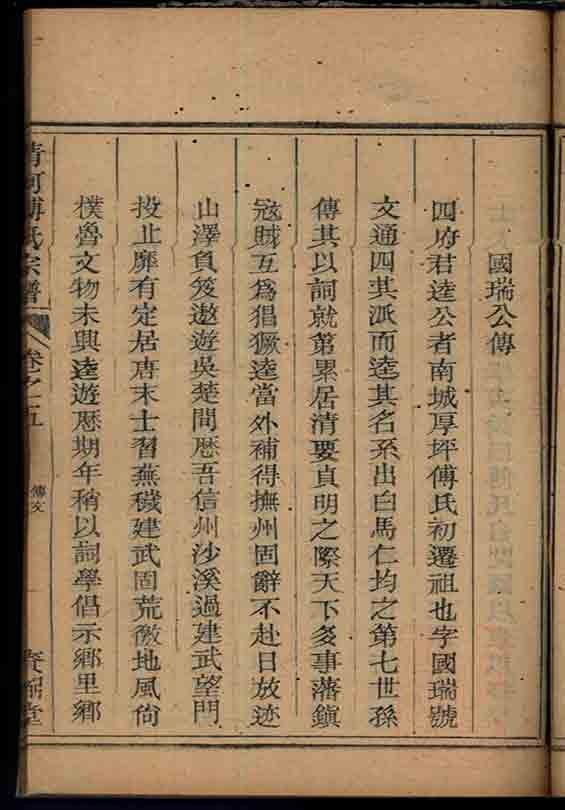 國瑞公傳
四府君逵公者南城厚坪傅氏初遷祖也字國瑞號
文通四其派而逵其名系出白馬仁均之第七世孫
傳其以詞就第累居清要貞明之際天下多事藩鎮
冦賊互爲猖獗逵當外補得撫州固辭不赴日放迹
山澤負笈遨遊吳楚間歷吾信州沙溪過建武望門
投止靡有定居唐末士習蕪穢建武固荒徼地風尙
樸魯文物未興逵遊歷期年稍以詞學倡示鄉里鄉
清河傅氏宗譜 卷之五 傳文